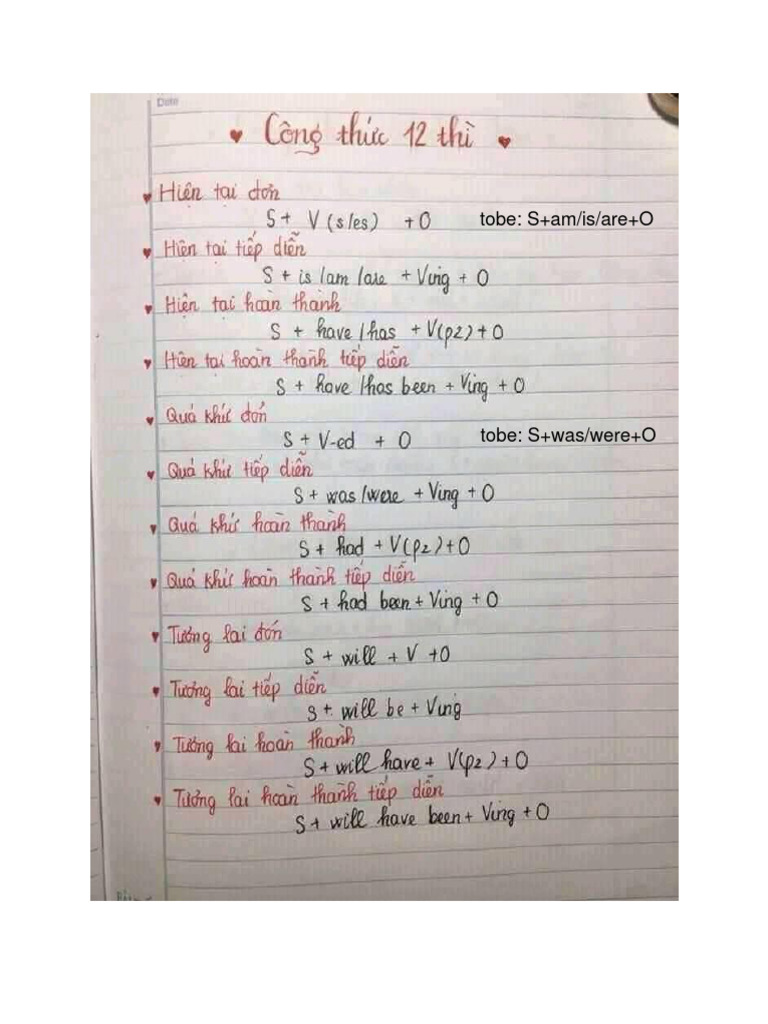 Date
Công thức 12 thì
Hiện tại đơn
S + V (s/es) + O tobe: S+am/is/are+O
Hiện tại tiếp diễn
S + is /am /are + Ving + O
Hiện tại hoàn thành
S + have / has + V(p2) + O
Hiện tại hoàn thành tiếp diễn
S + have /has been + Ving + O
Quá khứ đơn
S + V-ed + O tobe: S+was/were+O
Quá khứ tiếp diễn
S + was /were + Ving + O
Quá khứ hoàn thành
S + had + V(p2) + O
Quá khứ hoàn thành tiếp diễn
S + had been + Ving + O
Tương lai đơn
S + will + V + O
Tương lai tiếp diễn
S + will be + Ving
Tương lai hoàn thành
S + will have + V(p2) + O
Tương lai hoàn thành tiếp diễn
S + will have been + Ving + O